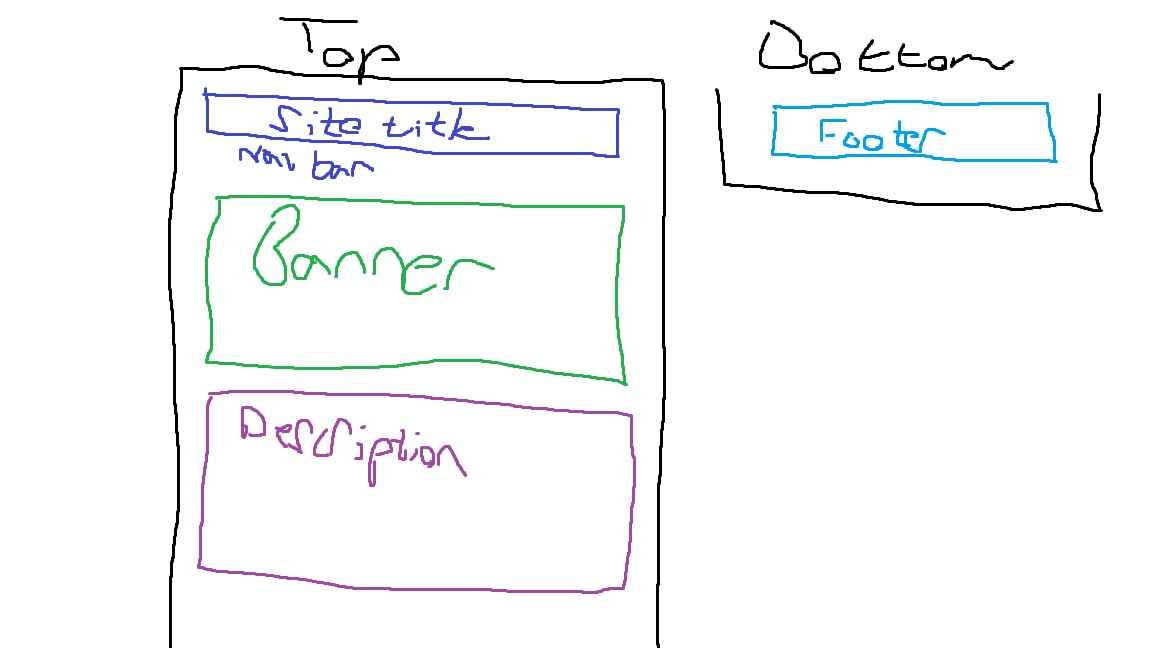 Top
Site title
Nav bar
Banner
Description
Bottom
Footer